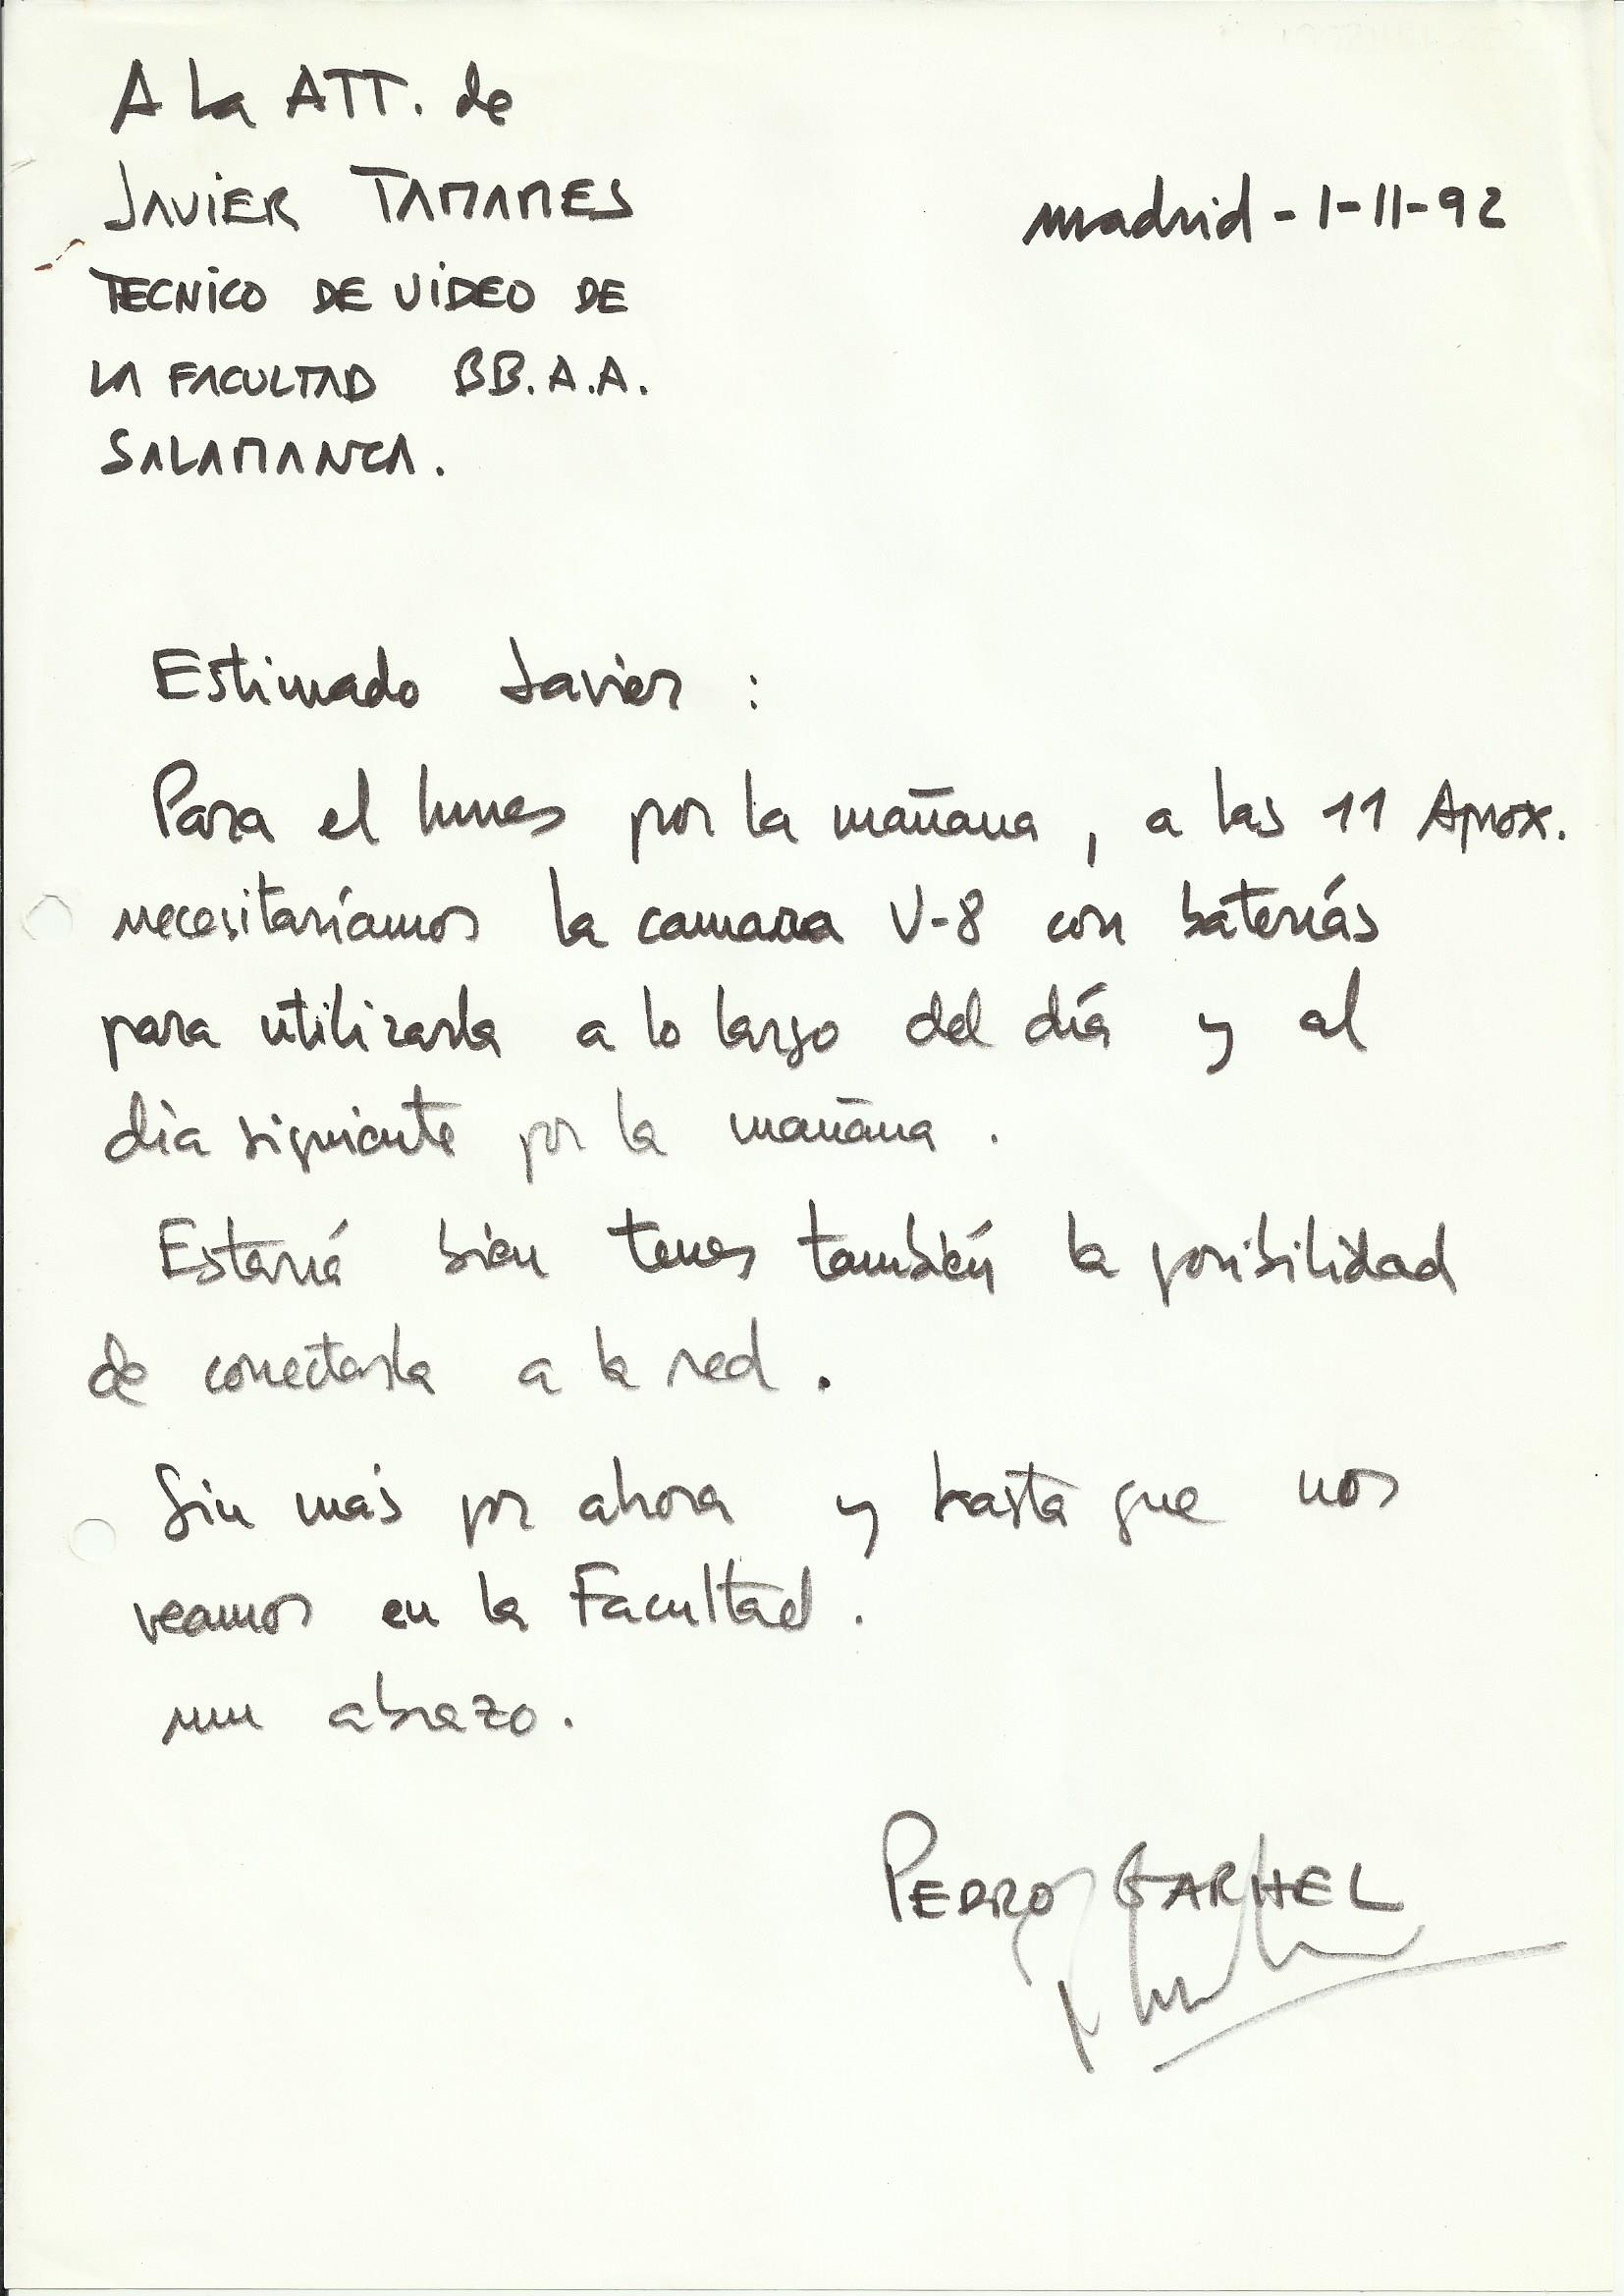 A la ATT. de
JAVIER TAMAMES
madrid - 1-11-92
TECNICO DE VIDEO DE
LA FACULTAD BB.A.A.
SALAMANCA.
Estimado Javier :
Para el lunes por la mañana, a las 11 Aprox.
necesitaríamos la camara V-8 con baterías
para utilizarla a lo largo del día y al
día siguiente por la mañana.
Estaría bien tener también la posibilidad
de conectarla a la red.
Sin más por ahora y hasta que nos
veamos en la Facultad.
un abrazo.
PEDRO GARHEL